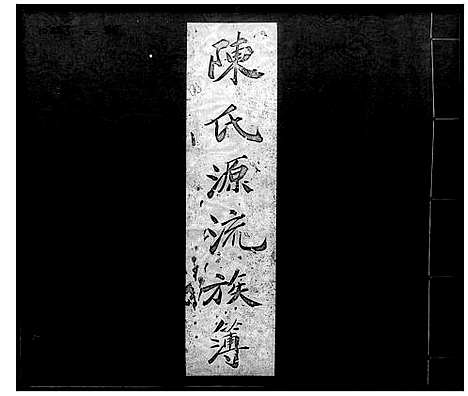 陳氏源流族簿